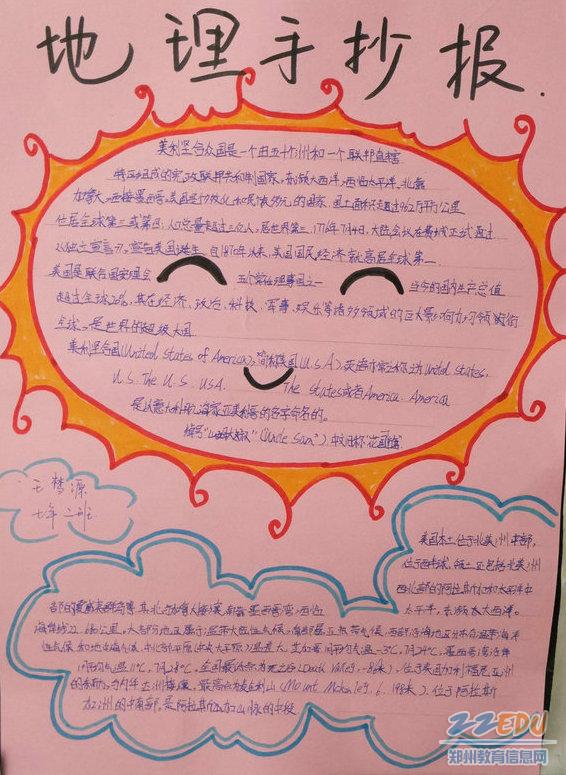 地理手抄报.
美利坚合众国是一个由五十个州和一个联邦直辖
特区组成的宪政联邦共和制国家,东濒大西洋,西临太平洋,北靠
加拿大,西接墨西哥,美国是个多文化和民族多元的国家,国土面积超过962万平方公里
位居全球第三或第四;人口总量超过三亿人,居世界第三,1776年7月4日,大陆会议在费城正式通过
《独立宣言》,宣告美国诞生,自1870年以来,美国国民经济就高居全球第一
美国是联合国安理会 五个常任理事国之一 当今的国内生产总值
超过全球20%,其在经济、政治、科技、军事、娱乐等诸多领域的巨大影响力均领衔
全球,是世界的超级大国
美利坚合众国(United States of America),简称美国(U.S.A),英语中常称为United States,
U.S. The U.S. USA. The States或者America. America
是以意大利航海家亚美利哥的名字命名的。
绰号"山姆大叔"(Uncle Sam")
王梦源
七年二班
美国本土位于北美洲中部,
位于西半球,领土还包括北美洲
西北部的阿拉斯加和太平洋中
太平洋,东濒大西洋。
其北与加拿大接壤,南靠墨西哥湾,西临
大部分地区属于温带大陆性气候,南部属亚热带气候,西部沿海地区分布有温带海洋
性气候和地中海气候,中北部平原
1月平均气温11℃,7月28℃,全国最低点为死亡谷(Death Valley,-86米),位于美国加利福尼亚州
最高点为麦金利山(Mount McKinley,6,198米),位于阿拉斯
加州的中南部,是阿拉斯加山脉的中段
ZZEDU
郑州教育信息网